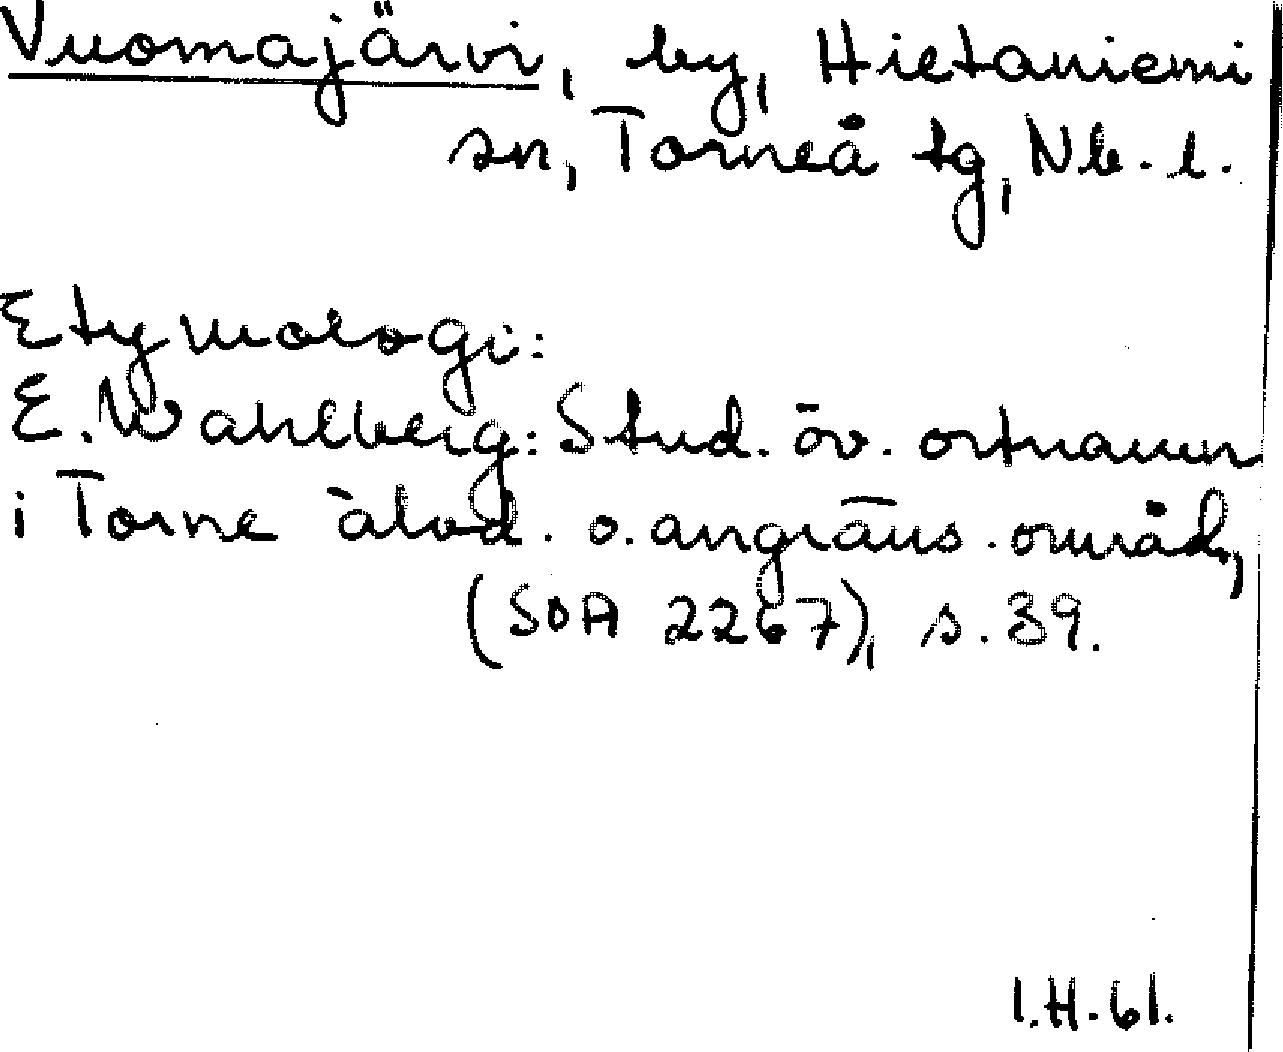 Vuomajärvi, by, Hietaniemi
sn, Torneå tg, Nb. l.
Etymologi:
E. Wahlberg: Stud. öv. ortnamn
i Torne älvd. o. angräns. områd,
(SOA 2267), s. 39.
I.H. 61.